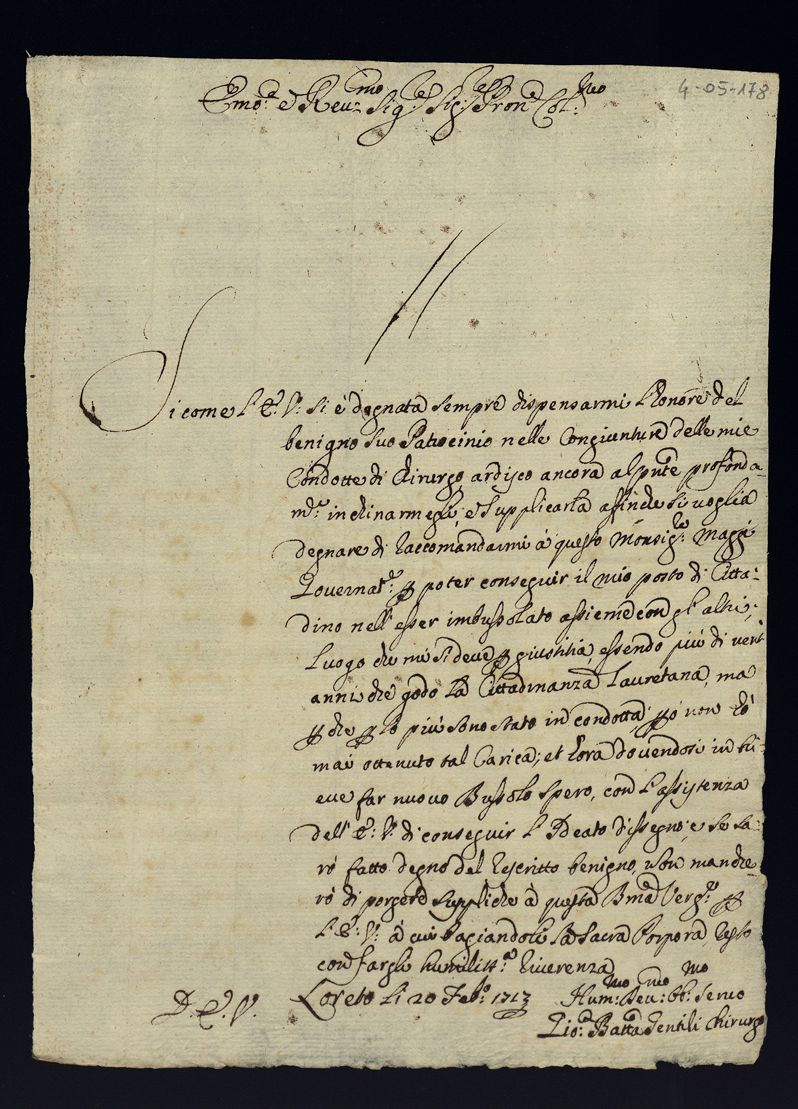 4-05-178
Em.o e Reu.mo Sig.re Sig.re Pron Col.mo
Sicome l'E: V: si è degnata sempre dispensarmi l'honore del
benigno suo Patrocinio nelle Congiunture delle mie
Condotte di Chirurgo ardisco ancora al pnte profonda-
m.te inchinarmegli, e supplicarla affinche si voglia
degnare di raccomandarmi à questo Monsig.re Maggi
Gouernat.re p poter conseguir il mio posto di Citta-
dino nell'esser imbussolato assieme con gl'altri;
luogo che mi si deue p giustitia, essendo più di uent'
anni che godo la Cittadinanza Lauretana, ma
p che p lo più sono stato in condotta, pò non hò
mai ottenuto tal Carica; et hora douendosi in bri-
eue far nuouo Bussolo spero, con l'assistenza
dell'E: V: di conseguir l'Ideato dissegno; e se sa-
rò fatto degno del rescritto benigno, non manche-
rò di porgere suppliche à questa Bma Verg.e p
l'E: V: à cui baciandole la Sacra Porpora, resto
con fargli humiliss.a riuerenza
D. E. V. Loreto li 20 Feb.o 1713 Hum.mo Deu.mo Ob.mo Seruo
Gio: Batta Gentili Chirurgo